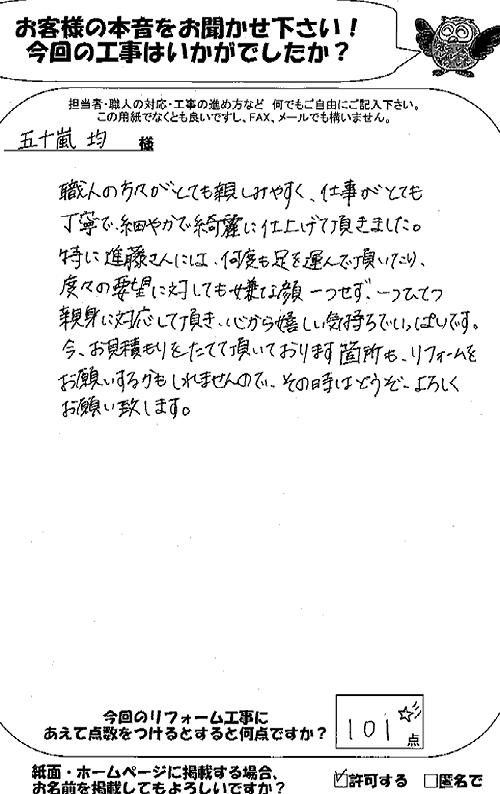 お客様の本音をお聞かせ下さい！
今回の工事はいかがでしたか？
担当者・職人の対応・工事の進め方など 何でもご自由にご記入下さい。
この用紙でなくとも良いですし、FAX、メールでも構いません。
五十嵐 均 様
職人の方々がとても親しみやすく、仕事がとても
丁寧で、細やかで綺麗に仕上げて頂きました。
特に進藤さんには、何度も足を運んで頂いたり、
度々の要望に対しても嫌な顔一つせず、一つひとつ
親身に対応して頂き、心から嬉しい気持ちでいっぱいです。
今、お見積もりをたてて頂いております箇所も、リフォームを
お願いするかもしれませんので、その時はどうぞ、よろしく
お願い致します。
今回のリフォーム工事に
あえて点数をつけるとすると何点ですか？
101☆点
紙面・ホームページに掲載する場合、
お名前を掲載してもよろしいですか？
☑許可する □匿名で